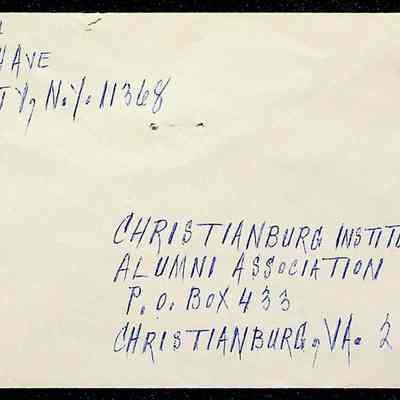 H AVE
TY, N.Y. 11368
CHRISTIANBURG INSTITU
ALUMNI ASSOCIATION
P.O. BOX 433
CHRISTIANBURG, VA. 2